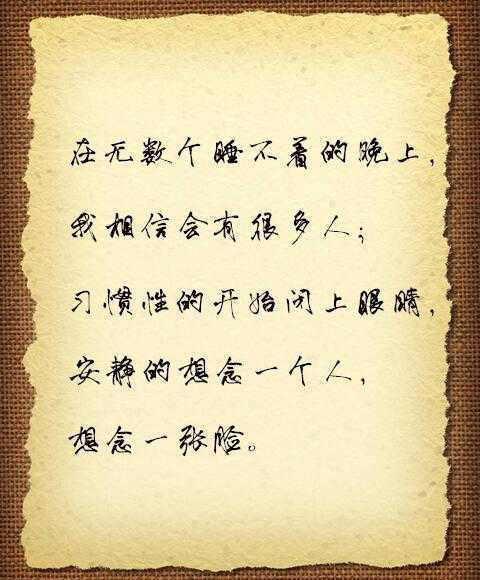 在无数个睡不着的晚上，
我相信会有很多人；
习惯性的开始闭上眼睛，
安静的想念一个人，
想念一张脸。